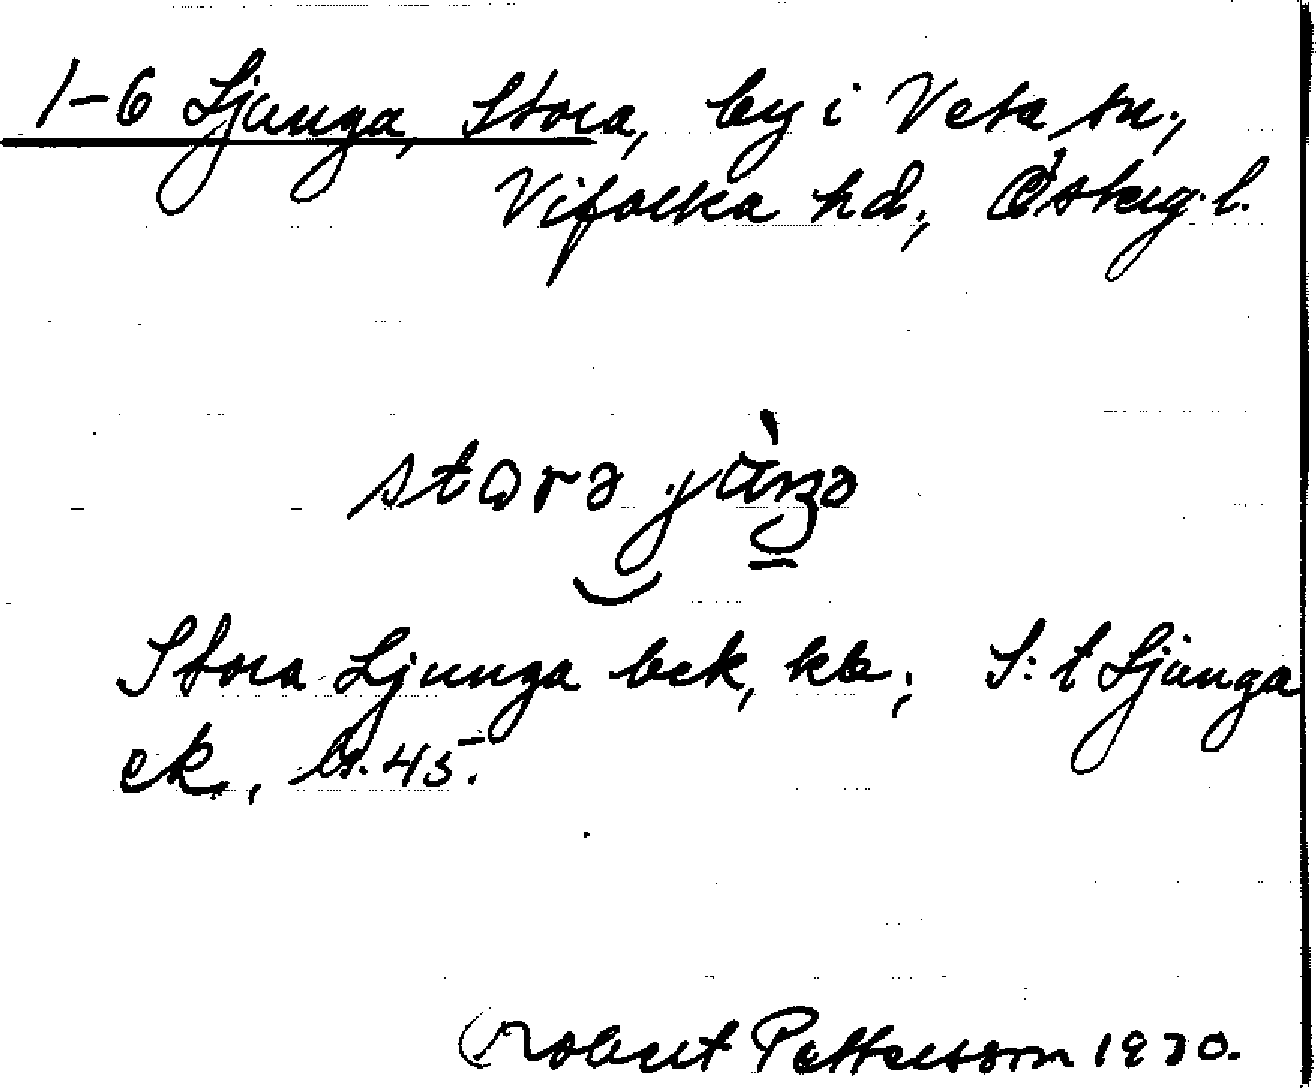 1-6 Ljunga, Stora, by i Veta sn.,
Vifolka hd., Österg. l.
Stora Ljunga bek, kb.; S:t Ljunga
ek., bl. 45.
Robert Pettersson 1930.